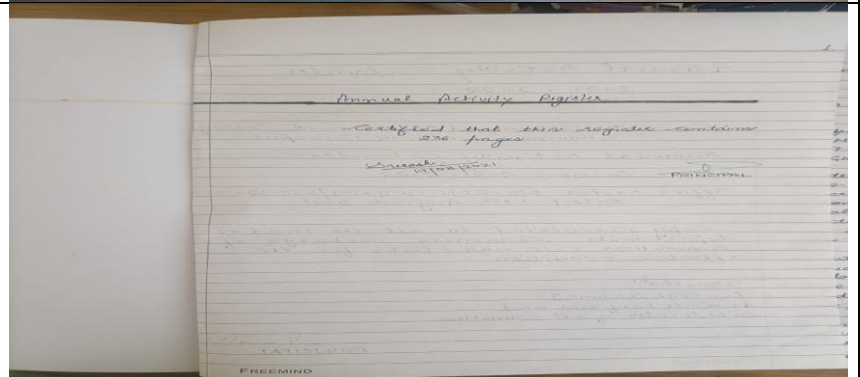 1
Annual Activity Register
Certified that this register contains
236 pages
17/08/2021
PRINCIPAL
FREEMIND